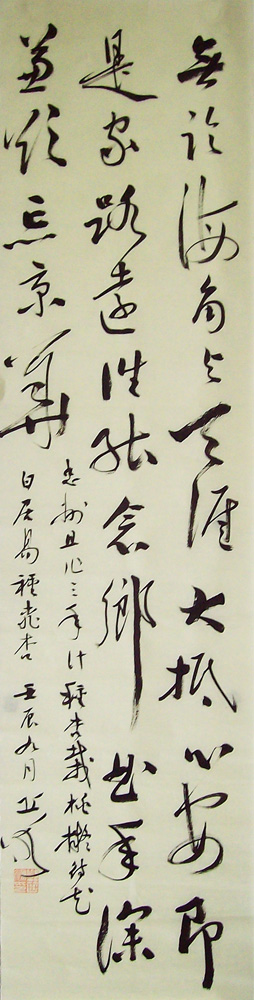 無論海角与天涯大抵心安即
是家路遠誰能念鄉曲年深
兼欲忘京華
忠州且作三年計種杏栽桃擬待花
白居易種桃杏 壬辰九月